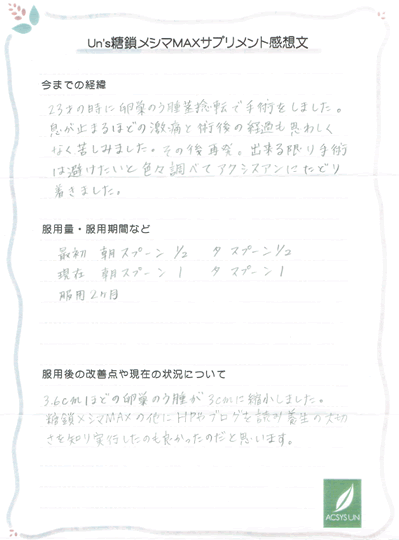 Un's糖鎖メシマMAXサプリメント感想文
今までの経緯
23才の時に卵巣のう腫茎捻転で手術をしました。
息が止まるほどの激痛と術後の経過も思わしく
なく苦しみました。その後再発。出来る限り手術
は避けたいと色々調べてアクシスアンにたどり
着きました。
服用量・服用期間など
最初 朝スプーン 1/2 夕スプーン 1/2
現在 朝スプーン 1 夕スプーン 1
服用2ヶ月
服用後の改善点や現在の状況について
3.6cmほどの卵巣のう腫が3cmに縮小しました。
糖鎖メシマMAXの他にHPやブログを読み養生の大切
さを知り実行したのも良かったのだと思います。
ACSYS UN